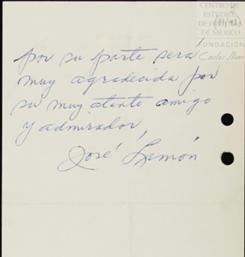 CENTRO DE
ESTUDIOS
DE HISTORIA
DE MEXICO
FUNDACIÓN
Carlos Slim
por su parte sera
muy agradecida por
su muy atento amigo
y admirador,
José Limón